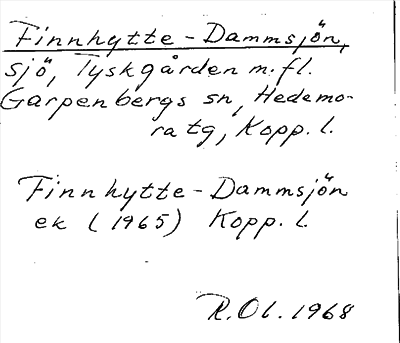 Finnhytte-Dammsjön,
sjö, Tyskgården m.fl.
Garpenbergs sn, Hedemo-
ra tg, Kopp. l.
Finnhytte-Dammsjön
ek (1965) Kopp. l.
R.Ol. 1968